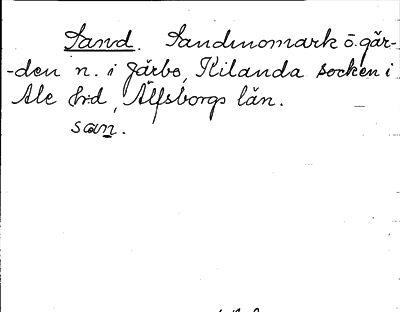 Sand. Sandmomark ö. går-
-den n. i Gärbo, Kilanda socken i
Ale h:d, Älfsborgs län.
san.